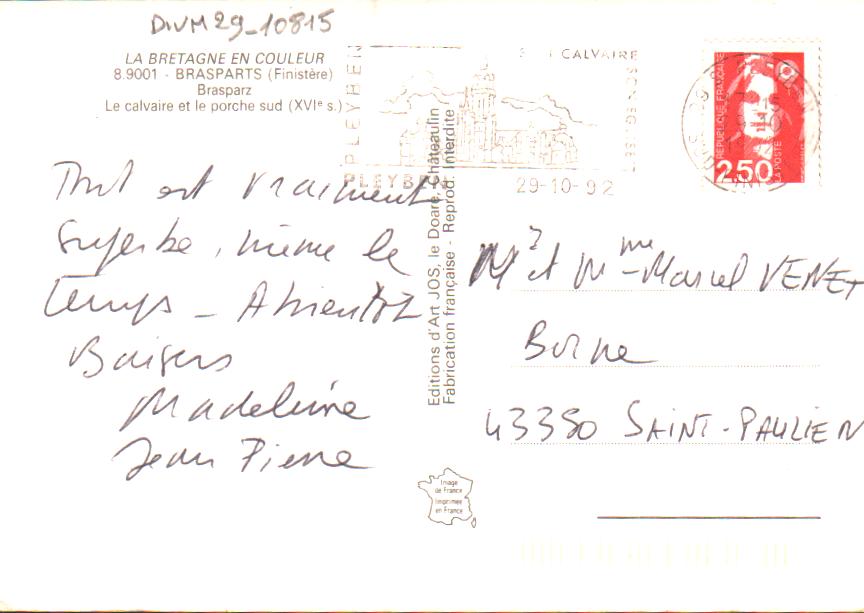 DivM29_10815
LA BRETAGNE EN COULEUR
8.9001 - BRASPARTS (Finistère)
Brasparz
Le calvaire et le porche sud (XVIe s.)
PLEYBEN
CALVAIRE
SON EGLISE
PLEYBEN
29-10-92
RÉPUBLIQUE FRANÇAISE
2,50
LA POSTE
Tout est vraiment
superbe, même le
temps - A bientôt
Baisers
Madeleine
Jean Pierre
Editions d'Art JOS, le Doaré, Châteaulin
Fabrication française - Reprod. Interdite
Mr et Mme Marcel VENET
Borne
43350 SAINT-PAULIEN
Image
de France
Imprimée
en France